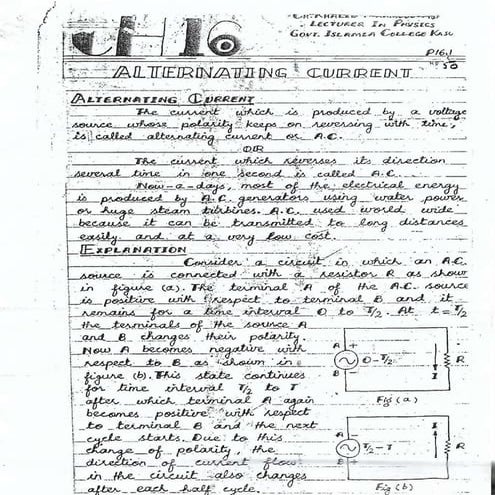 LECTURER IN PHYSICS
GOVT. ISLAMIA COLLEGE
CH 16
P16.1
ALTERNATING CURRENT
ALTERNATING CURRENT
The current which is produced by a voltage
source whose polarity keeps on reversing with time,
is called alternating current or A.C.
OR
The current which reverses its direction
several time in one second is called A.C.
Now-a-days, most of the electrical energy
is produced by A.C. generators using water power
or huge steam turbines. A.C. used world wide
because it can be transmitted to long distances
easily and at a very low cost.
EXPLANATION
Consider a circuit in which an A.C.
source is connected with a resistor R as show
in figure (a). The terminal A of the A.C. source
is positive with respect to terminal B and it
remains for a time interval 0 to T/2. At t = T/2
the terminals of the source A
and B changes their polarity.
Now A becomes negative with
respect to B as shown in
figure (b). This state continues
for time interval T/2 to T
after which terminal A again
becomes positive with respect
to terminal B and the next
cycle starts. Due to this
change of polarity, the
direction of current flow
in the circuit also changes
after each half cycle.
A +
0-T/2
B -
I
R
Fig (a)
A -
T/2-T
B +
I
R
Fig (b)